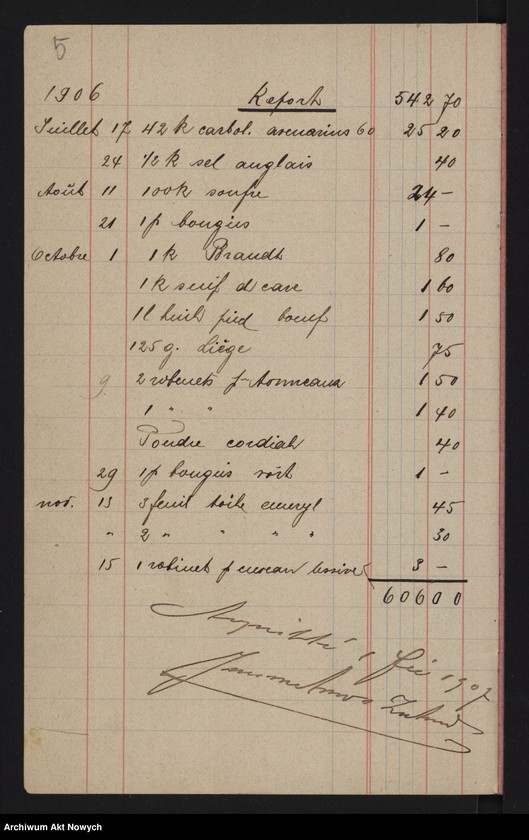 5
1906 Report 542 70
Juillet 17 42 k carbol. avenarius 60 25 20
24 1/2 k sel anglais 40
Août 11 100 k soufre 24 -
21 1 p bougies 1 -
Octobre 1 1 k Brandt 80
1 k suif d cave 1 60
1 l huile pied boeuf 1 50
125 g. Liège 75
9. 2 robinets p. tonneaux 1 50
1 " " 1 40
Poudre cordiale 40
29 1 p bougies 1 -
nov. 13 3 feuil toile emeryl 45
" 2 " " " " 30
15 1 robinet p lessive 3 -
606 00
Acquitté 1 1907